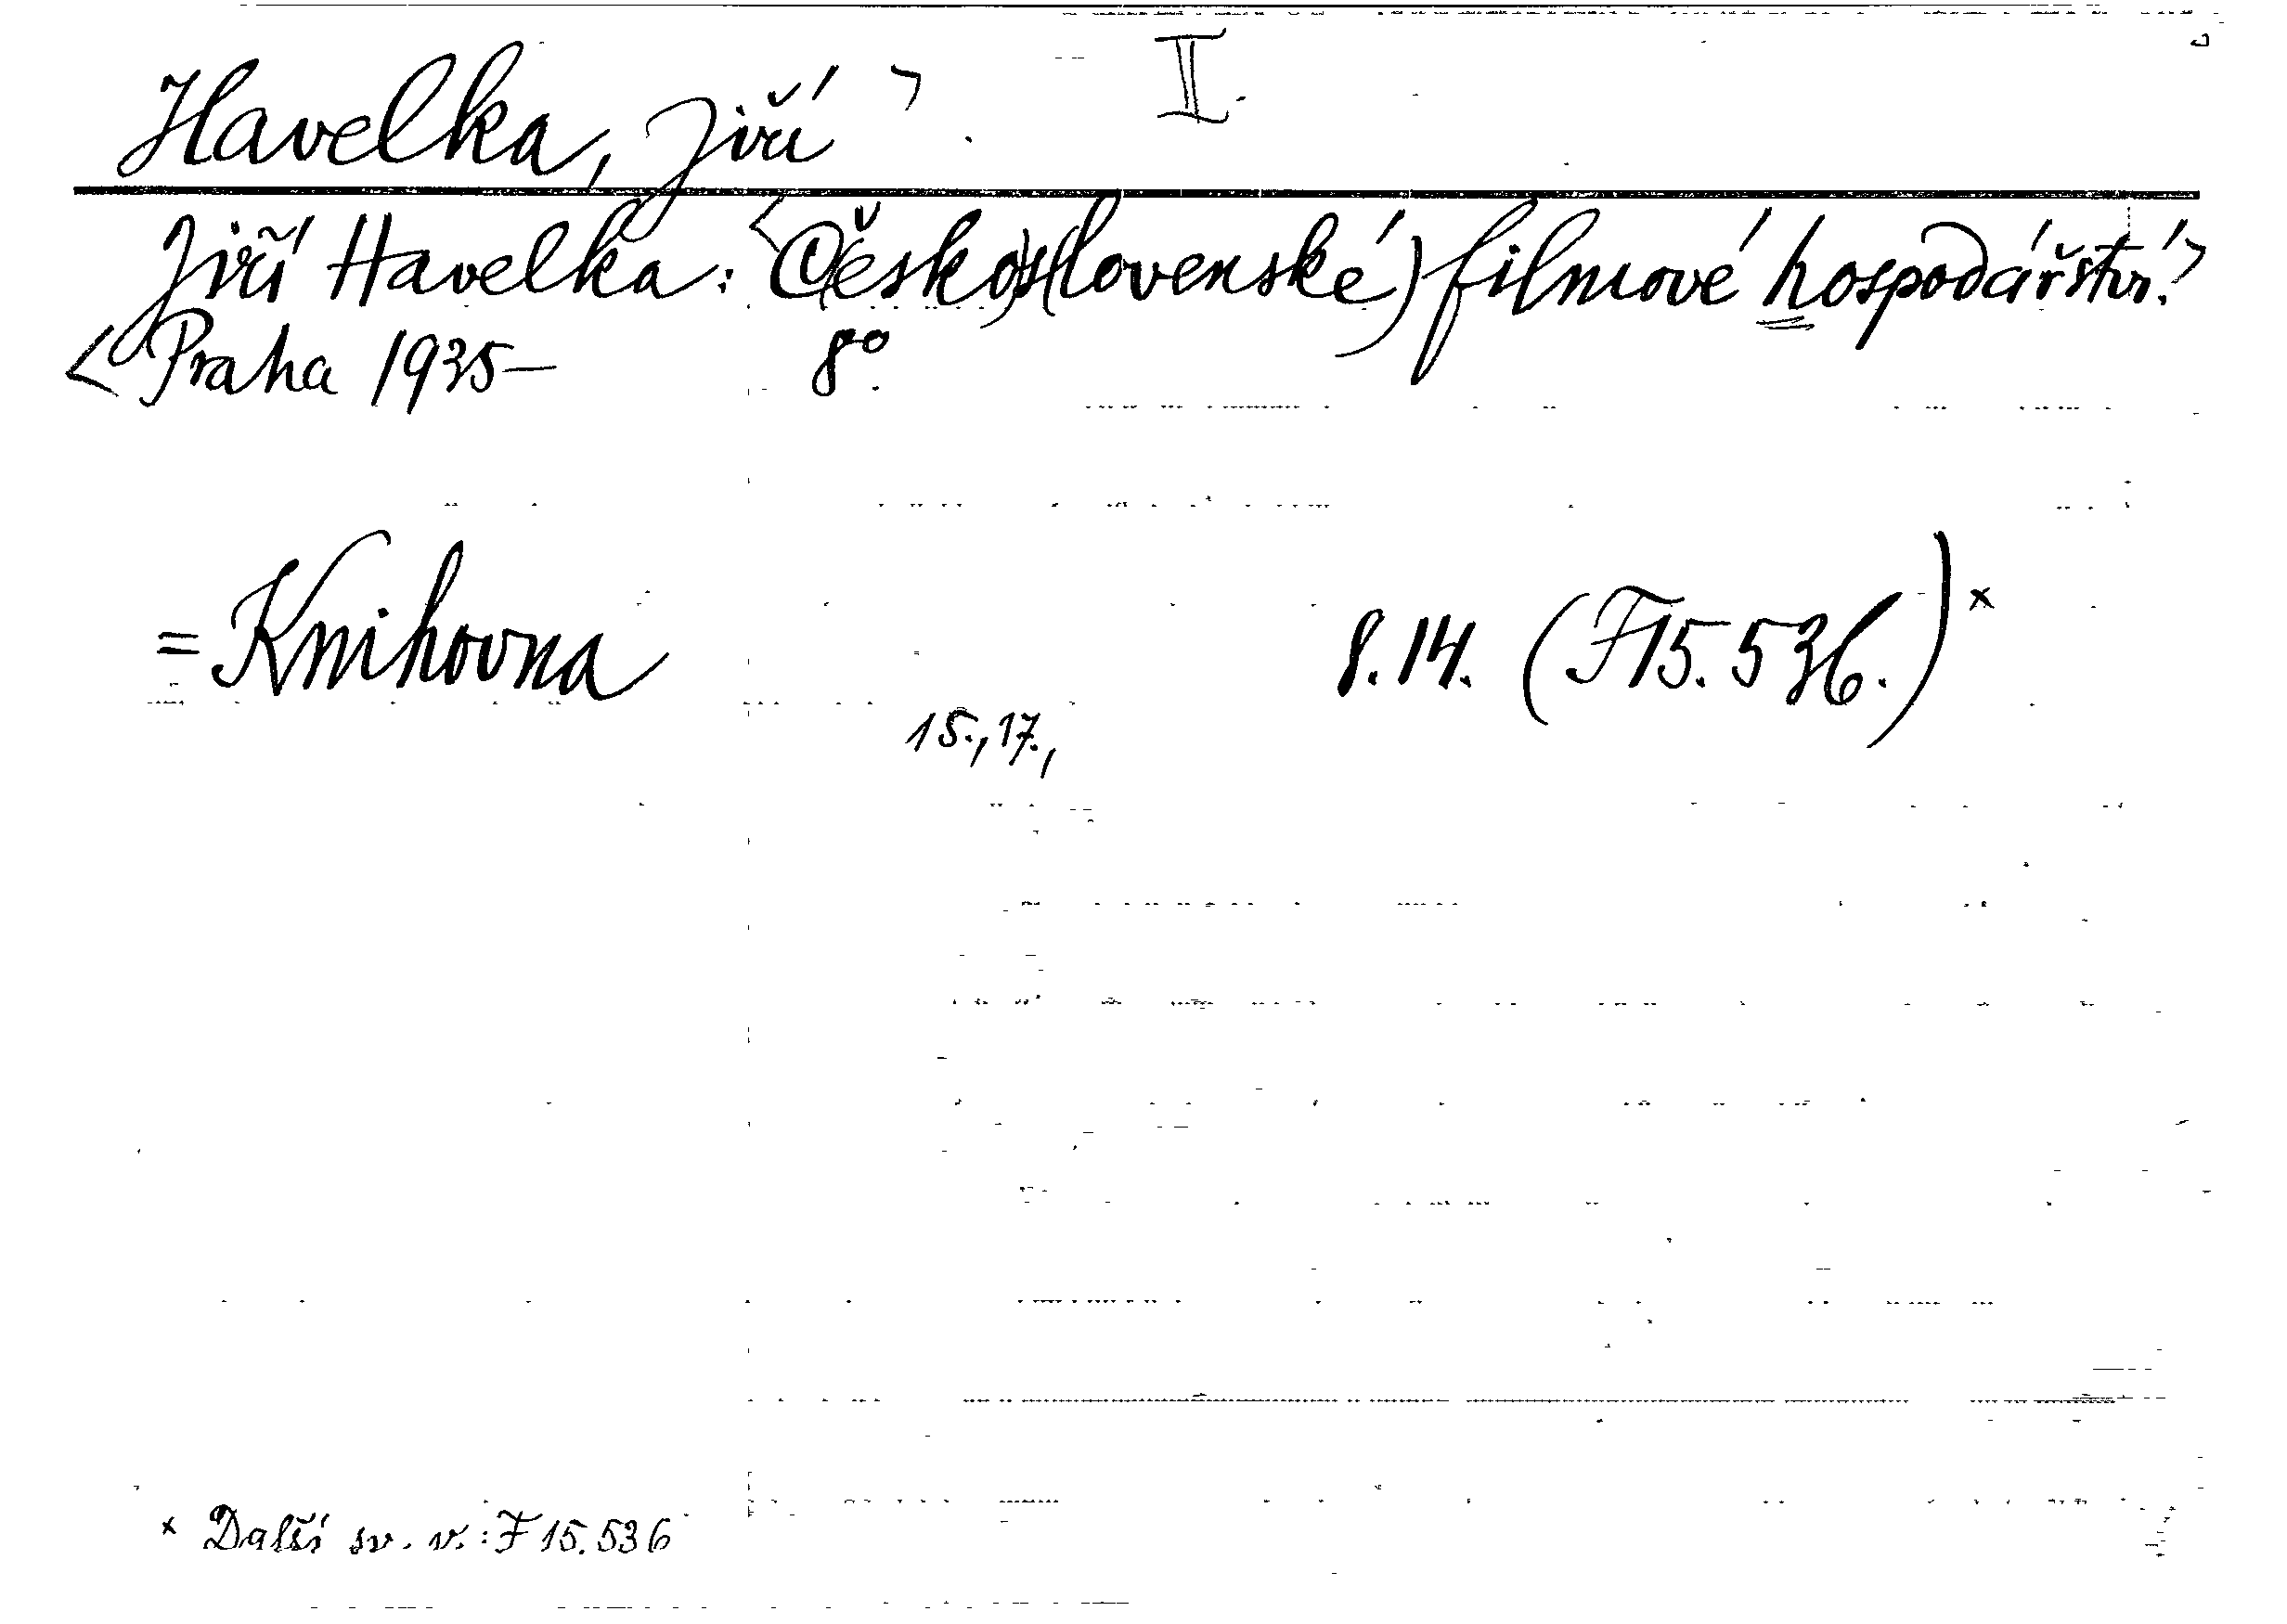 Havelka, Jiří > I.
Jiří Havelka: <Č(esko)s(lovenské) filmové hospodářství.>
<Praha 1935— 8°.
= Knihovna 8.14. (F15.536.) x
15., 17.,
x Další sv. v.: F 15.536